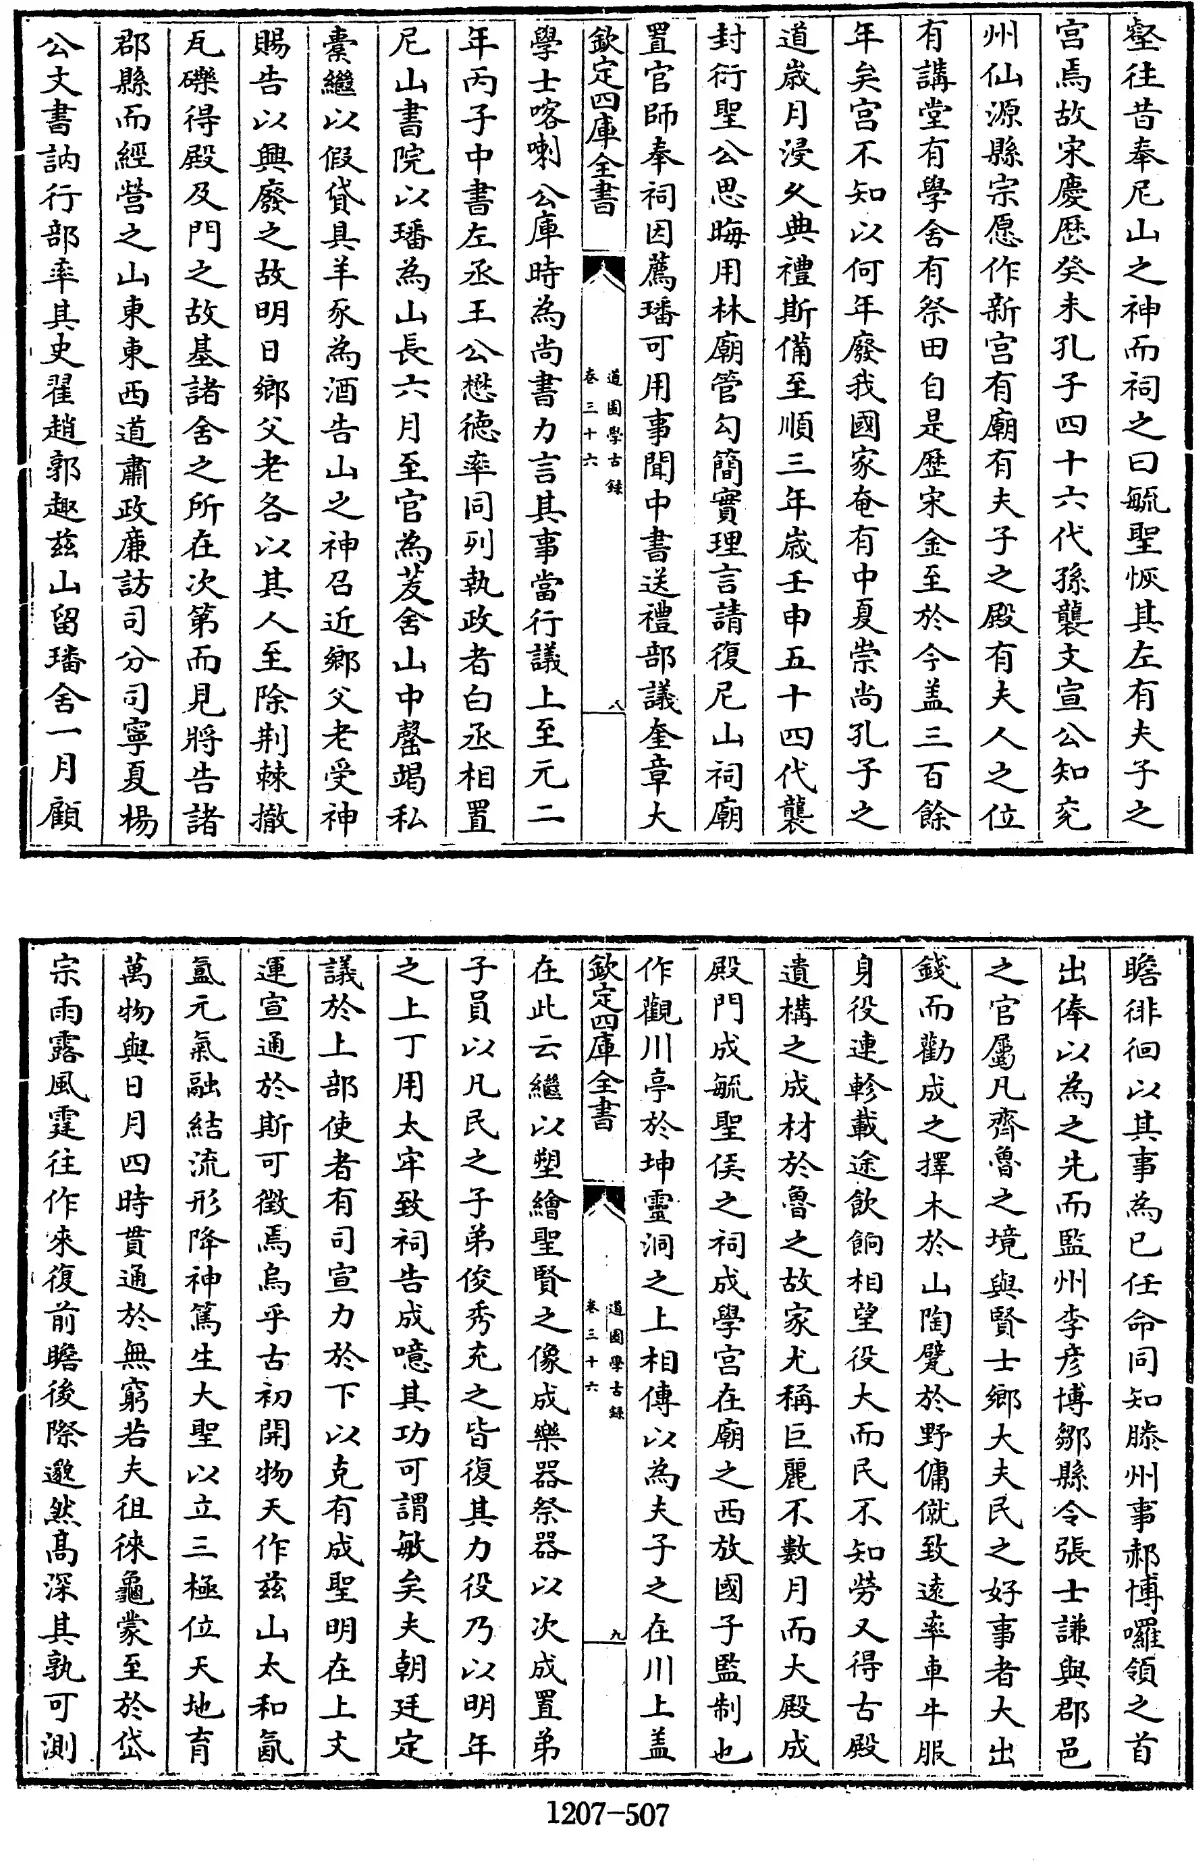 壑往昔奉尼山之神而祠之曰毓聖侯其左有夫子之
宫焉故宋慶厯癸未孔子四十六代孫襲文宣公知兖
州仙源縣宗愿作新宫有廟有夫子之殿有夫人之位
有講堂有學舍有祭田自是歴宋金至於今盖三百餘
年矣宫不知以何年廢我國家奄有中夏崇尚孔子之
道歳月浸久典禮斯備至順三年歳壬申五十四代襲
封衍聖公思晦用林廟管勾簡實理言請復尼山祠廟
置官師奉祠因薦璠可用事聞中書送禮部議奎章大
欽定四庫全書
道園學古録
卷三十六
八
學士喀喇公庫時為尚書力言其事當行議上至元二
年丙子中書左丞王公懋德率同列執政者白丞相置
尼山書院以璠為山長六月至官為茇舍山中罄竭私
橐繼以假貸具羊豕為酒告山之神召近鄉父老受神
賜告以興廢之故明日鄉父老各以其人至除荆棘撤
瓦礫得殿及門之故基諸舍之所在次第而見將告諸
郡縣而經營之山東東西道肅政亷訪司分司寧夏楊
公文書訥行部率其史翟趙郭趣兹山留璠舍一月顧
瞻徘徊以其事為已任命同知滕州事郝博囉領之首
出俸以為之先而監州李彦博鄒縣令張士謙與郡邑
之官屬凡齊魯之境與賢士鄉大夫民之好事者大出
錢而勸成之擇木於山陶甓於野傭僦致逺率車牛服
身役連軫載途飲餉相望役大而民不知勞又得古殿
遺構之成材於魯之故家尤稱巨麗不數月而大殿成
殿門成毓聖侯之祠成學宫在廟之西放國子監制也
作觀川亭於坤靈洞之上相傳以為夫子之在川上盖
欽定四庫全書
道園學古録
卷三十六
九
在此云繼以塑繪聖賢之像成樂器祭器以次成置弟
子員以凡民之子弟俊秀充之皆復其力役乃以明年
之上丁用太牢致祠告成噫其功可謂敏矣夫朝廷定
議於上部使者有司宣力於下以克有成聖明在上文
運宣通於斯可徴焉烏乎古初開物天作兹山太和氤
氲元氣融結流形降神篤生大聖以立三極位天地育
萬物與日月四時貫通於無窮若夫徂徠龜蒙至於岱
宗雨露風霆往作來復前瞻後際邈然髙深其孰可測
1207-507